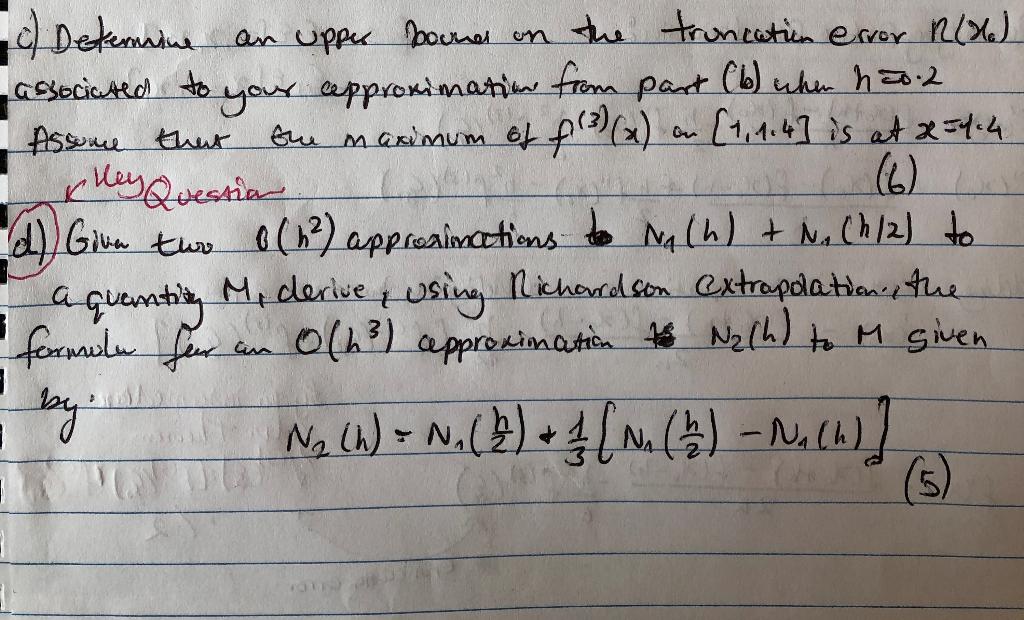 c) Determine an upper bound on the truncation error R(x₀)
associated to your approximation from part (b) when h=0.2
Assume that the maximum of f⁽³⁾(x) on [1,1.4] is at x=1.4
(6)
Key Question
d) Given two O(h²) approximations to N₁(h) + N₁(h/2) to
a quantity M, derive, using Richardson extrapolation, the
formula for an O(h³) approximation N₂(h) to M given
by:
N₂(h) = N₁(h/2) + 1/3 [N₁(h/2) - N₁(h)]
(5)